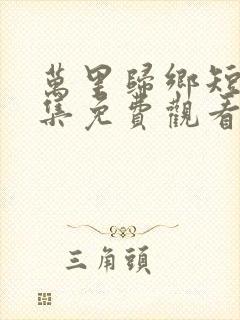 萬里歸鄉短
集免費觀看
三角頭